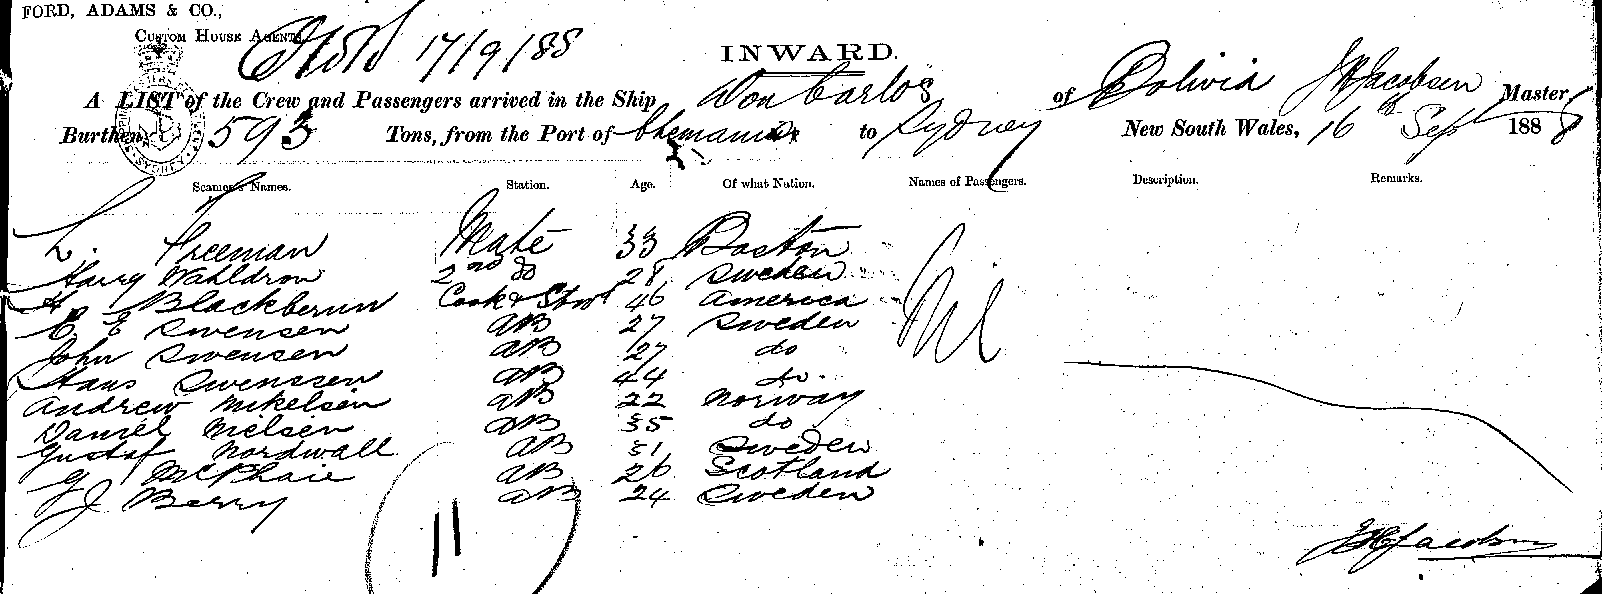 FORD, ADAMS & CO.,
CUSTOM HOUSE AGENTS
17/9/88
INWARD.
A LIST of the Crew and Passengers arrived in the Ship Don Carlos of Bolivia J H Jacobsen Master
Burthen 593 Tons, from the Port of Chemanis to Sydney New South Wales, 16th Sept 1888
Seamen's Names. Station. Age. Of what Nation. Names of Passengers. Description. Remarks.
L. Freeman Mate 33 Boston Nil
Harry Wahldron 2nd do 28 Sweden
H Blackberun Cook & Stwd 46 America
C. E Swensen AB 27 Sweden
John Swensen AB 27 do
Hans Swenssen AB 44 do.
Andrew Mikelsen AB 22 Norway
Daniel Nielsen AB 35 do
Gustaf Nordwall AB 31 Sweden
G McPhaie AB 26 Scotland
J Berry AB 24 Sweden
11
J H Jacobsen